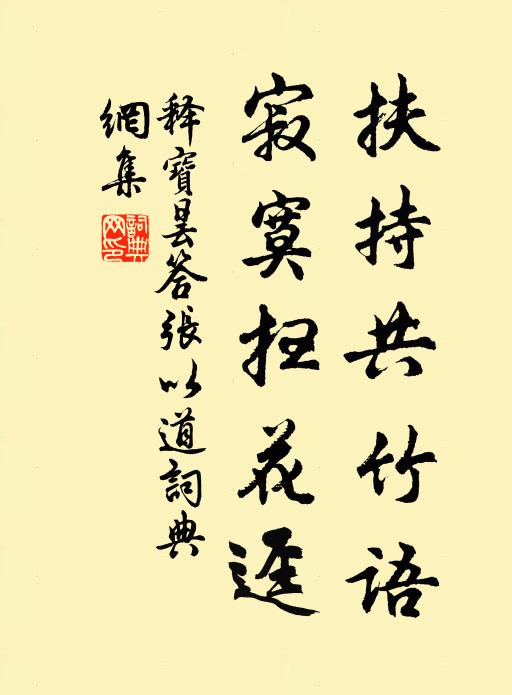 扶持共竹語
寂寞掃花逕
释寶曇答張以道詞典
網集
詞典
网印